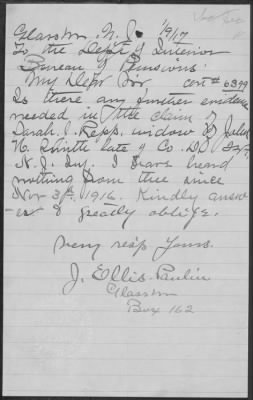 Glassboro, N. J. 1/9/17
To the Dept of Interior
Bureau of Pensions.
My Dear Sir cert # 6399
Is there any further evidence
needed in the claim of
Sarah. Repp. widow of John
N. late of Co. D. Regt,
N. J. Inf. I have heard
nothing from thee since
Nov 3rd, 1916. Kindly answ
-er & greatly oblige.
Very resp Yours.
J. Ellis Paulin
Glassboro
Box 162